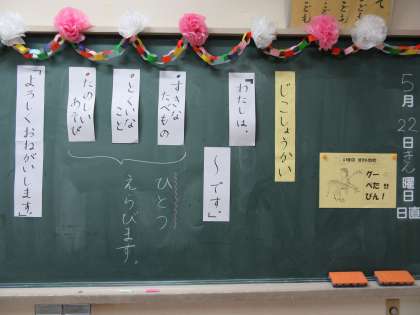 5月22日きん曜日
日直
じこしょうかい
「わたしは、
～です。」
・すきなたべもの
・とくいなこと
・たのしいあそび
ひとつ
えらびます。
「よろしくおねがいします。」
グー
ぺた
ぴん!